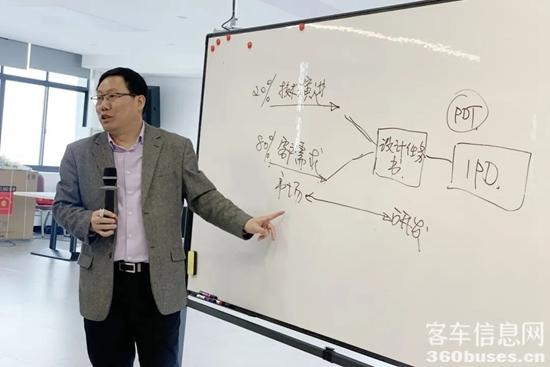 20% 技术演进
PDT
80% 客户需求
设计任务
书
IPD
市场
研发
客车信息网
360buses.cn